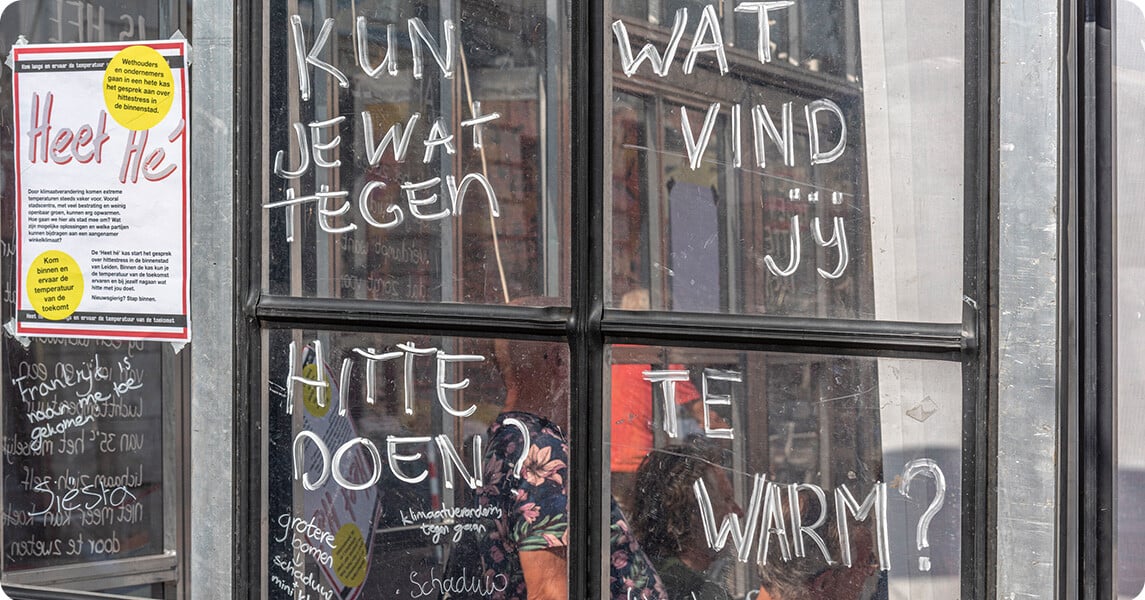 Kom langs en ervaar de temperatuur
Wethouders
en ondernemers
gaan in een hete kas
het gesprek aan over
hittestress in
de binnenstad.
Heet Hé
Door klimaatverandering komen extreme
temperaturen steeds vaker voor. Vooral
stadscentra, met veel bestrating en weinig
openbaar groen, kunnen erg opwarmen.
Hoe gaan we hier als stad mee om? Wat
zijn mogelijke oplossingen en welke partijen
kunnen bijdragen aan een aangenamer
winkelklimaat?
De 'Heet hé' kas start het gesprek
over hittestress in de binnenstad
van Leiden. Binnen de kas kun je
de temperatuur van de toekomst
ervaren en bij jezelf nagaan wat
hitte met jou doet.
Nieuwsgierig? Stap binnen.
Kom
binnen en
ervaar de
temperatuur
van de
toekomt
en ervaar de temperatuur van de toekomst
"Frankrijk is
naar me toe
gekomen"
Siësta
KUN
JE WAT
TEGEN
HITTE
DOEN?
grotere
bomen
schaduw
+
mini
klimaatverandering
tegen gaan
Schaduw
WAT JIJ
VIND
JIJ
TE
WARM?